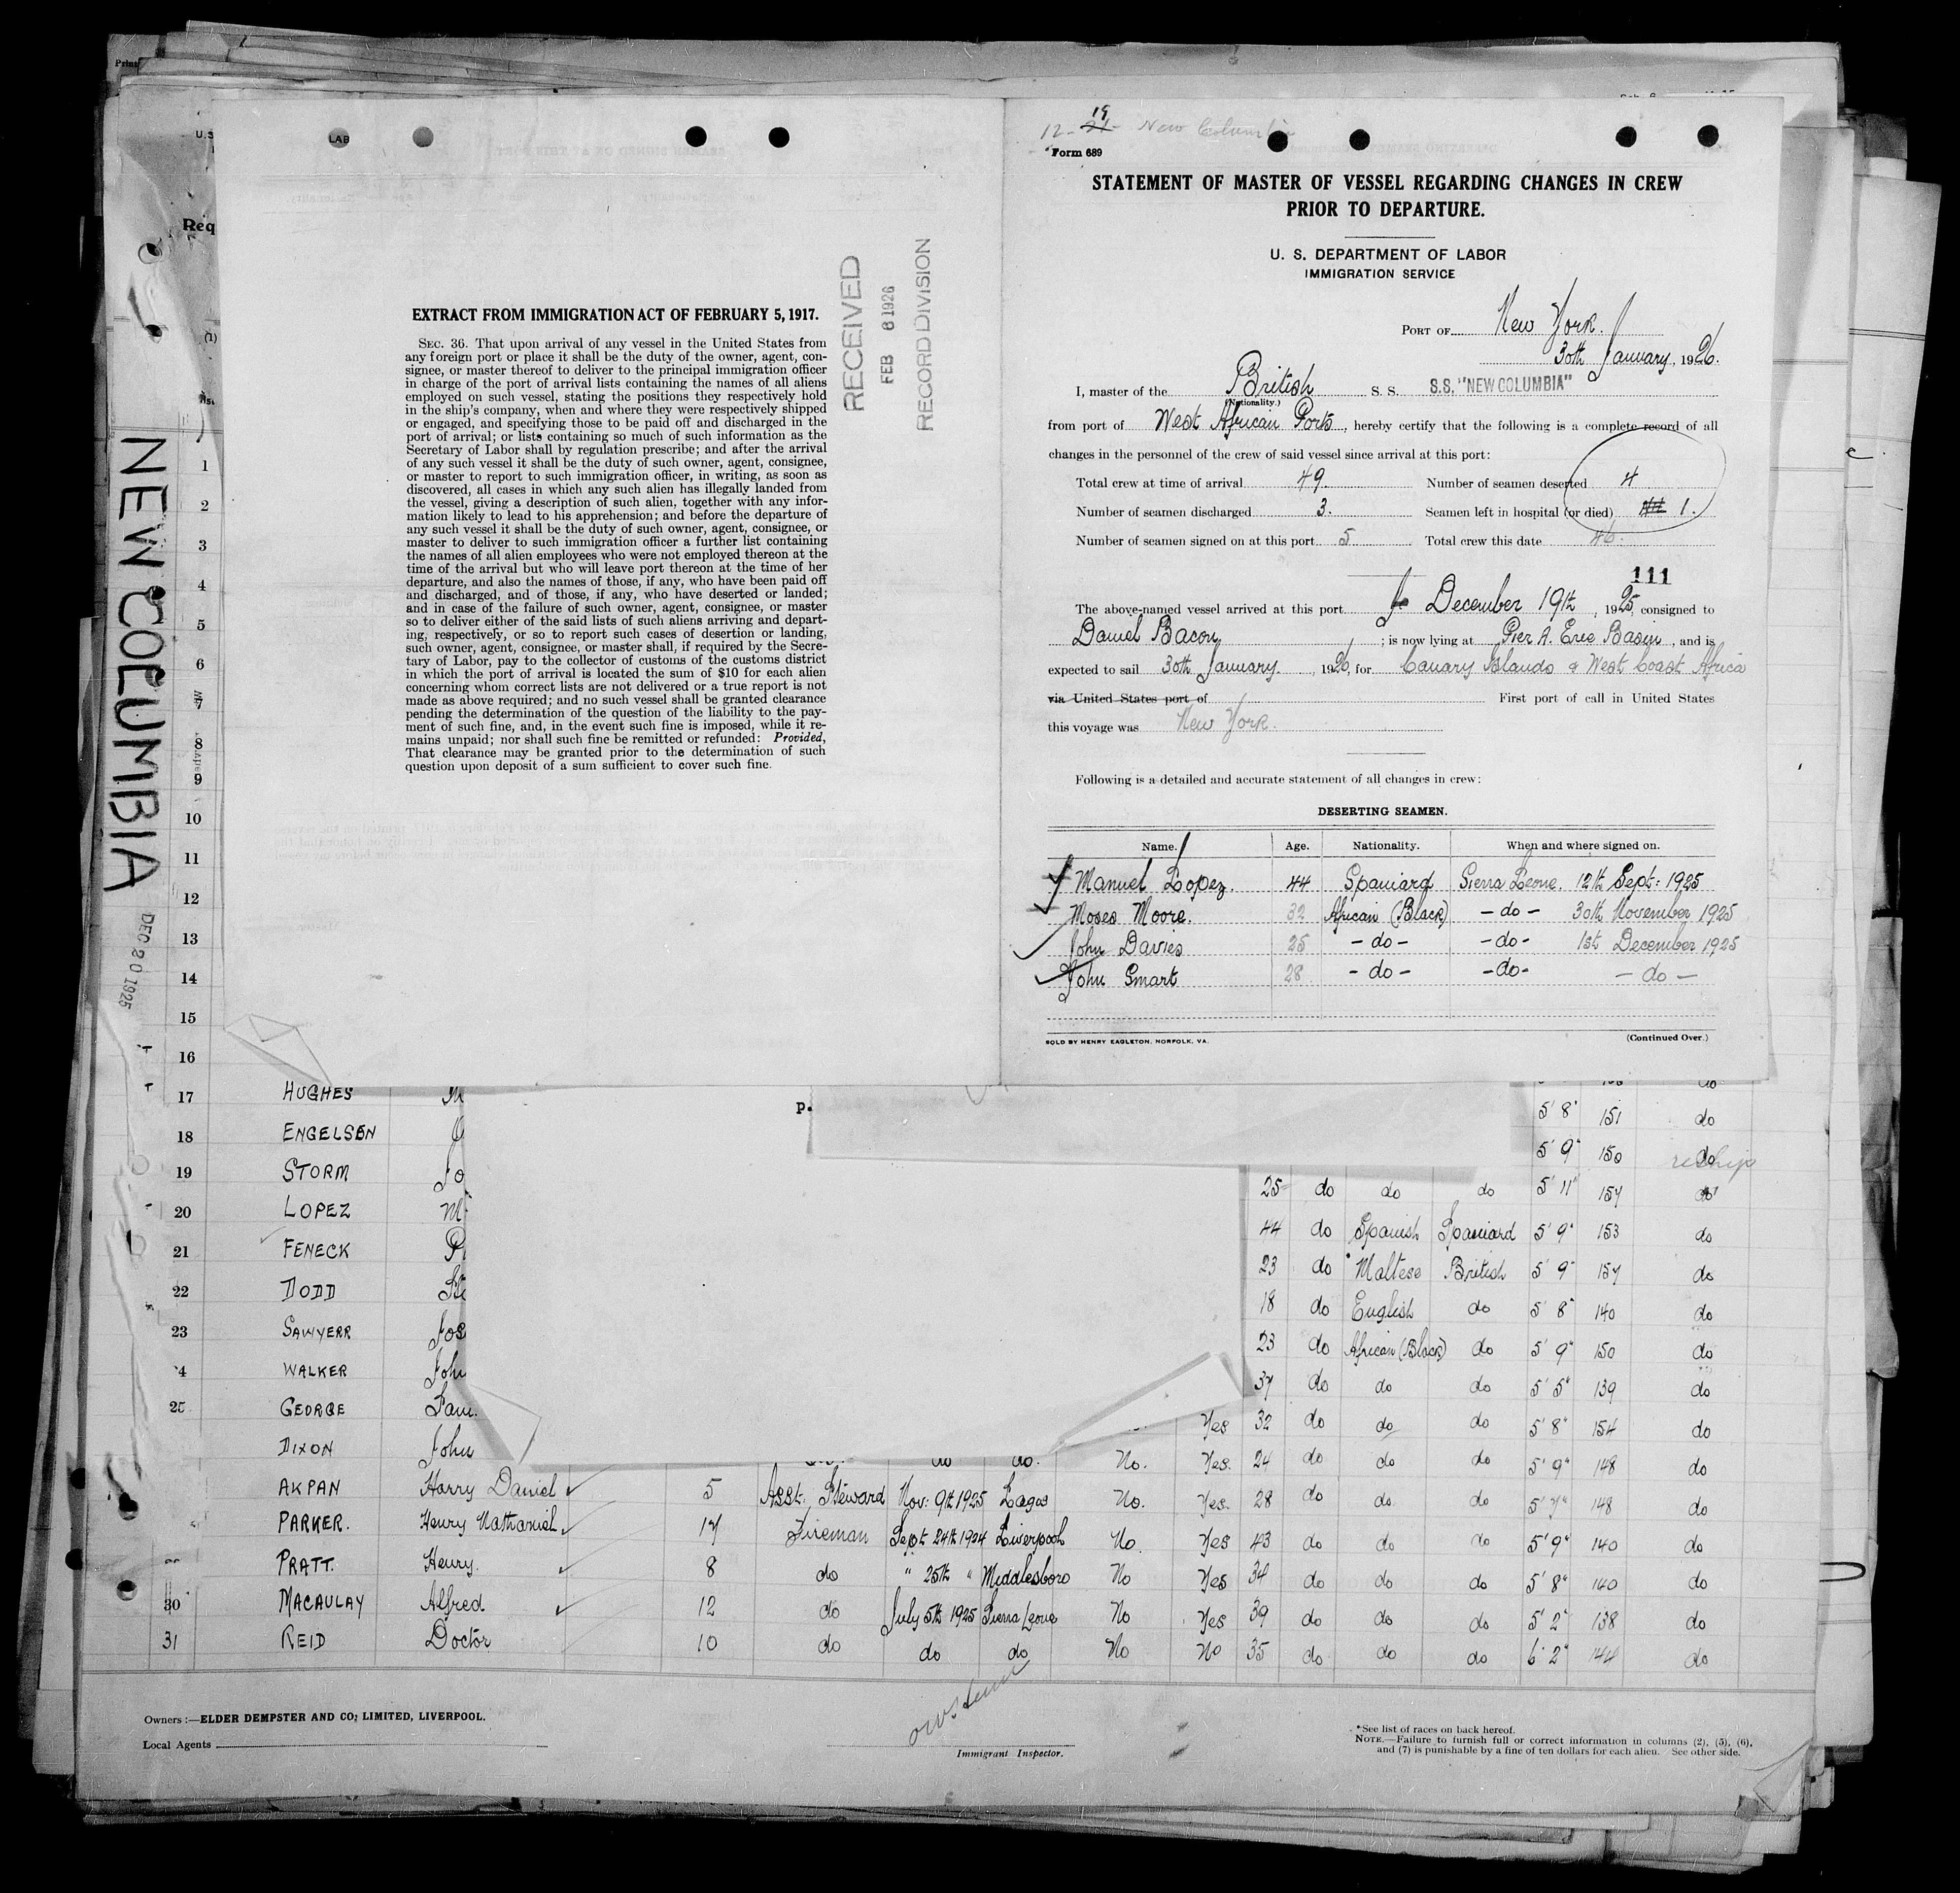 NEW COLUMBIA
DEC 20 1925
LAB
EXTRACT FROM IMMIGRATION ACT OF FEBRUARY 5, 1917.
SEC. 36. That upon arrival of any vessel in the United States from
any foreign port or place it shall be the duty of the owner, agent, con-
signee, or master thereof to deliver to the principal immigration officer
in charge of the port of arrival lists containing the names of all aliens
employed on such vessel, stating the positions they respectively hold
in the ship's company, when and where they were respectively shipped
or engaged, and specifying those to be paid off and discharged in the
port of arrival; or lists containing so much of such information as the
Secretary of Labor shall by regulation prescribe; and after the arrival
of any such vessel it shall be the duty of such owner, agent, consignee,
or master to report to such immigration officer, in writing, as soon as
discovered, all cases in which any such alien has illegally landed from
the vessel, giving a description of such alien, together with any infor-
mation likely to lead to his apprehension; and before the departure of
any such vessel it shall be the duty of such owner, agent, consignee, or
master to deliver to such immigration officer a further list containing
the names of all alien employees who were not employed thereon at the
time of the arrival but who will leave port thereon at the time of her
departure, and also the names of those, if any, who have been paid off
and discharged, and of those, if any, who have deserted or landed;
and in case of the failure of such owner, agent, consignee, or master
so to deliver either of the said lists of such aliens arriving and depart-
ing, respectively, or so to report such cases of desertion or landing,
such owner, agent, consignee, or master shall, if required by the Secre-
tary of Labor, pay to the collector of customs of the customs district
in which the port of arrival is located the sum of $10 for each alien
concerning whom correct lists are not delivered or a true report is not
made as above required; and no such vessel shall be granted clearance
pending the determination of the question of the liability to the pay-
ment of such fine, and, in the event such fine is imposed, while it re-
mains unpaid; nor shall such fine be remitted or refunded: Provided,
That clearance may be granted prior to the determination of such
question upon deposit of a sum sufficient to cover such fine.
RECEIVED
FEB 8 1926
RECORD DIVISION
12-19 New Columbia
Form 689
STATEMENT OF MASTER OF VESSEL REGARDING CHANGES IN CREW
PRIOR TO DEPARTURE.
U. S. DEPARTMENT OF LABOR
IMMIGRATION SERVICE
PORT OF New York.
30th January, 1926.
I, master of the British S. S. S.S. "NEW COLUMBIA"
(Nationality.)
from port of West African Ports, hereby certify that the following is a complete record of all
changes in the personnel of the crew of said vessel since arrival at this port:
Total crew at time of arrival 49. Number of seamen deserted 4
Number of seamen discharged 3. Seamen left in hospital (or died) 1.
Number of seamen signed on at this port 5 Total crew this date 46.
111
The above-named vessel arrived at this port December 19th, 1925, consigned to
Daniel Bacon; is now lying at Pier A. Erie Basin, and is
expected to sail 30th January, 1926, for Canary Islands & West Coast Africa
via United States port of First port of call in United States
this voyage was New York.
Following is a detailed and accurate statement of all changes in crew:
DESERTING SEAMEN.
Name. Age. Nationality. When and where signed on.
Manuel Lopez. 44 Spaniard Sierra Leone. 12th Sept: 1925
Moses Moore. 32 African (Black) -do- 30th November 1925
John Davies 25 -do- -do- 1st December 1925
John Smart 28 -do- -do- -do-
SOLD BY HENRY EAGLETON, NORFOLK, VA. (Continued Over.)
Req
1
2
3
4
5
6
7
8
9
10
11
12
13
14
15
16
17 HUGHES
P.
18 ENGELSEN 5' 8" 151 do
19 STORM Jo 5' 9" 150 do reship
20 LOPEZ M 25 do do do 5' 11" 157 do
21 FENECK 44 do Spanish Spaniard 5' 9" 153 do
22 DODD 23 do Maltese British 5' 9" 157 do
23 SAWYERR Jos 18 do English do 5' 8" 140 do
4 WALKER John 23 do African (Black) do 5' 9" 150 do
25 GEORGE Sam. 37 do do do 5' 5" 139 do
DIXON John Yes 32 do do do 5' 8" 154 do
do do. No. Yes. 24 do do do 5' 9" 148 do
AKPAN Harry Daniel 5 Asst. Steward Nov: 9th 1925 Lagos No. Yes. 28 do do do 5' 7" 148 do
PARKER. Henry Nathaniel 17 Fireman Sept 24th 1924 Liverpool No. Yes 43 do do do 5' 9" 140 do
PRATT. Henry. 8 do " 25th " Middlesboro No Yes 34 do do do 5' 8" 140 do
30 MACAULAY Alfred 12 do July 5th 1925 Sierra Leone No Yes 39 do do do 5' 2" 138 do
31 REID Doctor 10 do do do No No 35 do do do 6' 2" 144 do
Owners:—ELDER DEMPSTER AND CO; LIMITED, LIVERPOOL.
Local Agents
Immigrant Inspector.
*See list of races on back hereof.
NOTE.—Failure to furnish full or correct information in columns (2), (5), (6),
and (7) is punishable by a fine of ten dollars for each alien. See other side.